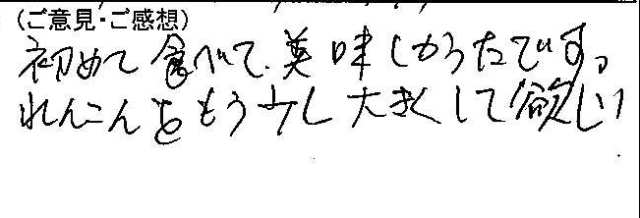 (ご意見・ご感想)
初めて食べて、美味しかったです。
れんこんをもう少し大きくして欲しい